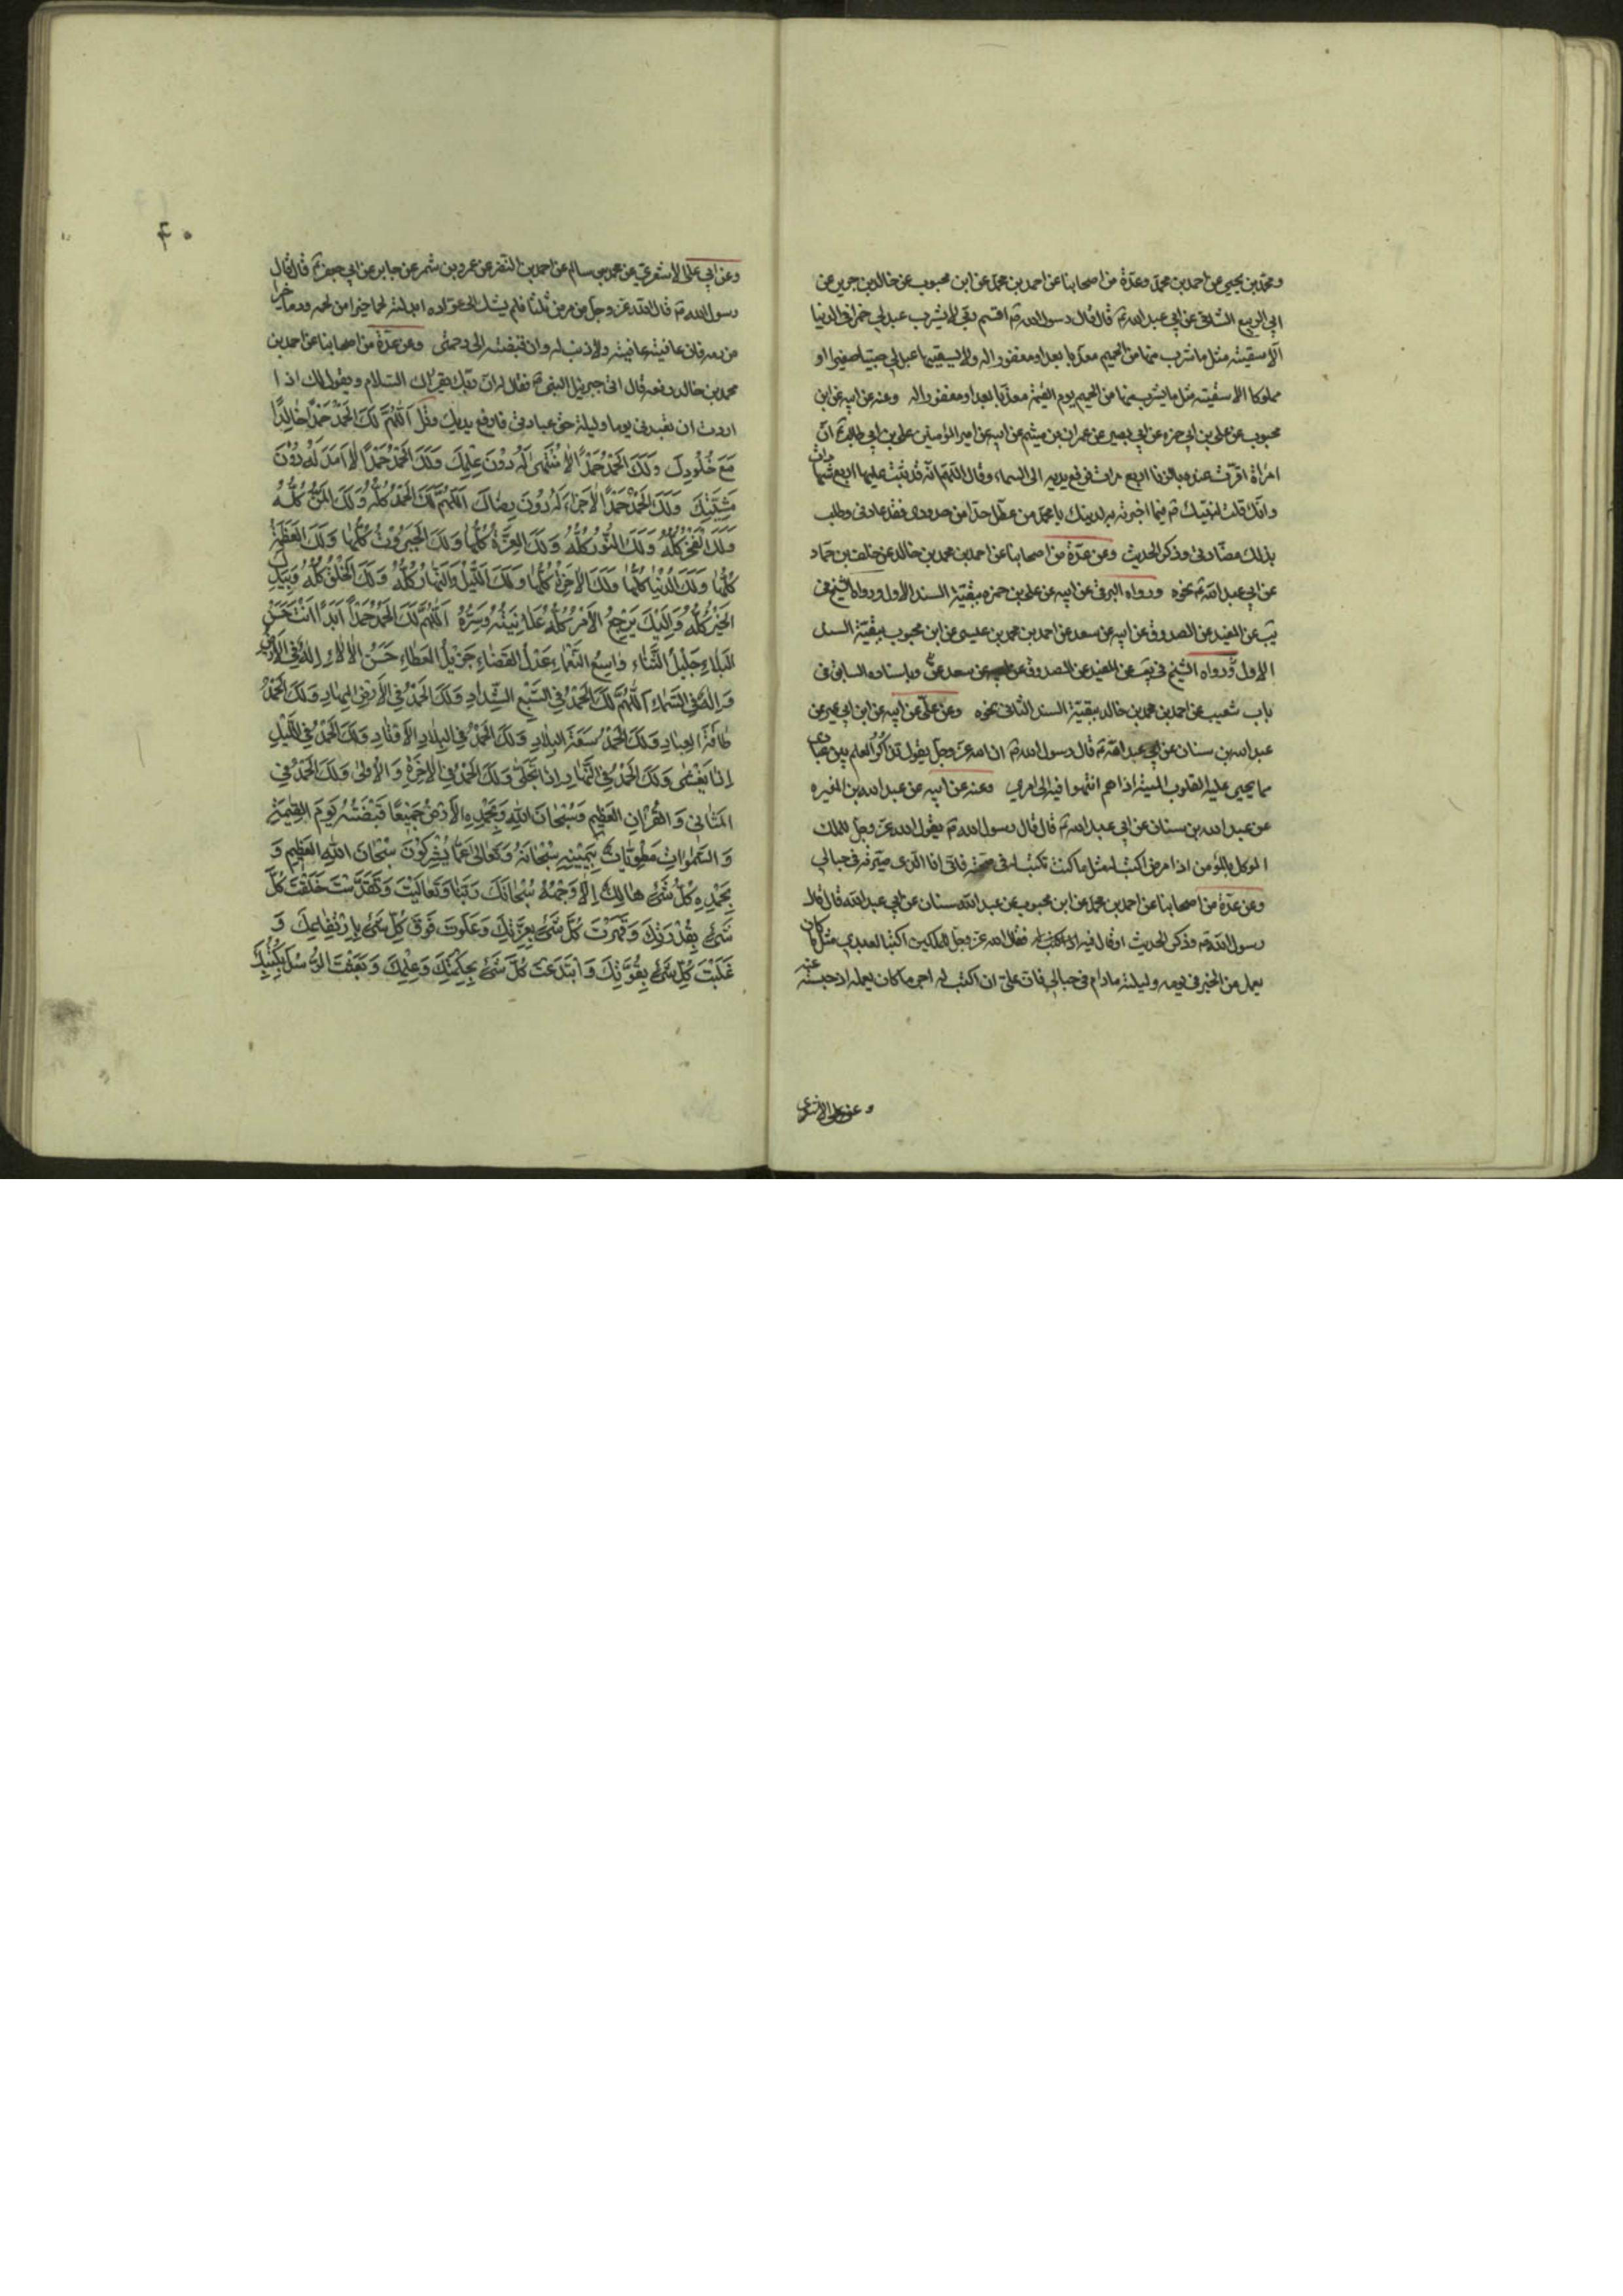 ومحمد بن يحيى عن احمد بن محمد وعدة من اصحابنا عن احمد بن محمد عن ابن محبوب عن خالد بن جرير عن
ابي الربيع الشامي عن ابي عبد الله ع قال قال رسول الله ص اقسم ربي لا يشرب عبد لي خمرا في الدنيا
الا سقيته مثل ما شرب منها من الحميم معذبا بعد او مغفورا له ولا يسقيها عبد لي صبيا صغيرا او
مملوكا الا سقيته مثل ما يشرب منها من الحميم يوم القيمة معذبا بعد او مغفورا له وعنه عن ابيه عن ابن
محبوب عن علي بن ابي حمزه عن ابي بصير عن عمران بن ميثم عن ابيه عن امير المؤمنين علي بن ابي طالب ع ان
امراة اقرت عنده بالزنا اربع مرات فرفع يديه الى السماء وقال اللهم انه قد ثبت عليها اربع شهادات
وانك قلت لنبيك ص فيما اخبرته به لدينك يا محمد من عطل حدا من حدودي فقد عاندني وطلب
بذلك مضادتي وذكر الحديث وعن عدة من اصحابنا عن احمد بن محمد بن خالد عن خلف بن حماد
عن ابي عبد الله ع نحوه ورواه البرقي عن ابيه عن علي بن حمزه ببقية السند الاول ورواه الشيخ في
يب عن المفيد عن الصدوق عن ابيه عن سعد عن احمد بن محمد بن عيسى عن ابن محبوب ببقية السند
الاول ورواه الشيخ في عن المفيد عن الصدوق عن سعد عن وباسناده السابق في
باب شعيب عن احمد بن محمد بن خالد ببقية السند الثاني نحوه وعن علي عن ابيه عن ابن ابي عمير عن
عبد الله بن سنان عن ابي عبد الله ع قال رسول الله ص ان الله عز وجل يقول تذاكر العلم بين عبادي
مما يحيى عليه القلوب الميتة اذا هم انتهوا فيه الى امري وعنه عن ابيه عن عبد الله بن المغيره
عن عبد الله بن سنان عن ابي عبد الله ع قال قال رسول الله ص يقول الله عز وجل للملك
الموكل بالمؤمن اذا مرض اكتب له مثل ما كنت تكتب له في صحته فاني انا الذي صيرته في حبالي
وعن عدة من اصحابنا عن احمد بن محمد عن ابن محبوب عن عبد الله سنان عن ابي عبد الله قال قال
رسول الله ص وذكر الحديث وقال فيه فقال الله عز وجل للملكين اكتبا لعبدي مثل ما كان
يعمل من الخير في يومه وليلته مادام في حبالي فان علي ان اكتب له اجر ما كان يعمله اذ حبسته عنه
وعن ابي علي الاشعري
۴۰
وعن ابي علي الاشعري عن محمد بن سالم عن احمد بن النضر عن عمرو بن شمر عن جابر عن ابي جعفر ع قال قال
رسول الله ص قال الله عز وجل من مرض ثلثا فلم يشك الى عواده ابدلته لحما خيرا من لحمه ودما خيرا
من دمه فان عافيته عافيته ولا ذنب له وان قبضته الى رحمتي وعن عدة من اصحابنا عن احمد بن
محمد بن خالد رفعه قال اتى جبرئيل النبي ص فقال له ان ربك يقرئك السلام ويقول لك اذا
اردت ان تعبدني يوما وليلة حق عبادتي فارفع يديك وقل اَللّٰهُمَّ لَكَ الْحَمْدُ حَمْدًا خٰالِدًا
مَعَ خُلُودِكَ وَلَكَ الْحَمْدُ حَمْدًا لاٰ مُنْتَهٰى لَهُ دُوْنَ عِلْمِكَ وَلَكَ الْحَمْدُ حَمْدًا لاٰ اَمَدَ لَهُ دُوْنَ
مَشِيَّتِكَ وَلَكَ الْحَمْدُ حَمْدًا لاٰ جَزٰاءَ لَهُ دُوْنَ رِضٰاكَ اَللّٰهُمَّ لَكَ الْحَمْدُ كُلُّهُ وَلَكَ الْمَنُّ كُلُّهُ
وَلَكَ الْفَخْرُ كُلُّهُ وَلَكَ النُّوْرُ كُلُّهُ وَلَكَ الْعِزَّةُ كُلُّهٰا وَلَكَ الْجَبَرُوْتُ كُلُّهٰا وَلَكَ الْعَظَمَةُ
كُلُّهٰا وَلَكَ الدُّنْيٰا كُلُّهٰا وَلَكَ الْاٰخِرَةُ كُلُّهٰا وَلَكَ اللَّيْلُ وَالنَّهٰارُ كُلُّهُ وَلَكَ الْخَلْقُ كُلُّهُ وَبِيَدِكَ
الْخَيْرُ كُلُّهُ وَاِلَيْكَ يَرْجِعُ الْاَمْرُ كُلُّهُ عَلاٰنِيَتُهُ وَسِرُّهُ اَللّٰهُمَّ لَكَ الْحَمْدُ حَمْداً اَبَداً اَنْتَ حَسَنُ
الْبَلاٰءِ جَلِيْلُ الثَّنٰاءِ وٰاسِعُ النَّعْمٰاءِ عَدْلُ الْقَضٰاءِ جَزِيْلُ الْعَطٰاءِ حَسَنُ الْاٰلاٰءِ اِلٰهُ فِي الْاَرْضِ
وَاِلٰهُ فِي السَّمٰاءِ اَللّٰهُمَّ لَكَ الْحَمْدُ فِي السَّبْعِ الشِّدٰادِ وَلَكَ الْحَمْدُ فِي الْاَرْضِ الْمِهٰادِ وَلَكَ الْحَمْدُ
طٰاقَةَ الْعِبٰادِ وَلَكَ الْحَمْدُ سَعَةَ الْبِلاٰدِ وَلَكَ الْحَمْدُ فِي الْجِبٰالِ الْاَوْتٰادِ وَلَكَ الْحَمْدُ فِي اللَّيْلِ
اِذٰا يَغْشٰى وَلَكَ الْحَمْدُ فِي النَّهٰارِ اِذٰا تَجَلّٰى وَلَكَ الْحَمْدُ فِي الْاٰخِرَةِ وَ الْاُولٰى وَلَكَ الْحَمْدُ فِي
الْمَثٰانِي وَ الْقُرْاٰنِ الْعَظِيْمِ وَسُبْحٰانَ اللّٰهِ وَبِحَمْدِهِ الْاَرْضُ جَمِيْعًا قَبْضَتُهُ يَوْمَ الْقِيٰمَةِ
وَ السَّمٰوٰاتُ مَطْوِيّٰاتٌ بِيَمِيْنِهِ سُبْحٰانَهُ وَتَعٰالٰى عَمّٰا يُشْرِكُوْنَ سُبْحٰانَ اللّٰهِ الْعَظِيْمِ وَ
بِحَمْدِهِ كُلُّ شَيْءٍ هٰالِكٌ اِلاّٰ وَجْهَهُ سُبْحٰانَكَ رَبَّنٰا وَتَعٰالَيْتَ وَتَقَدَّسْتَ خَلَقْتَ كُلَّ
شَيْءٍ بِقُدْرَتِكَ وَقَهَرْتَ كُلَّ شَيْءٍ بِعِزَّتِكَ وَعَلَوْتَ فَوْقَ كُلِّ شَيْءٍ بِارْتِفٰاعِكَ وَ
غَلَبْتَ كُلَّ شَيْءٍ بِقُوَّتِكَ وَابْتَدَعْتَ كُلَّ شَيْءٍ بِحِكْمَتِكَ وَعِلْمِكَ وَبَعَثْتَ الرُّسُلَ بِكُتُبِكَ